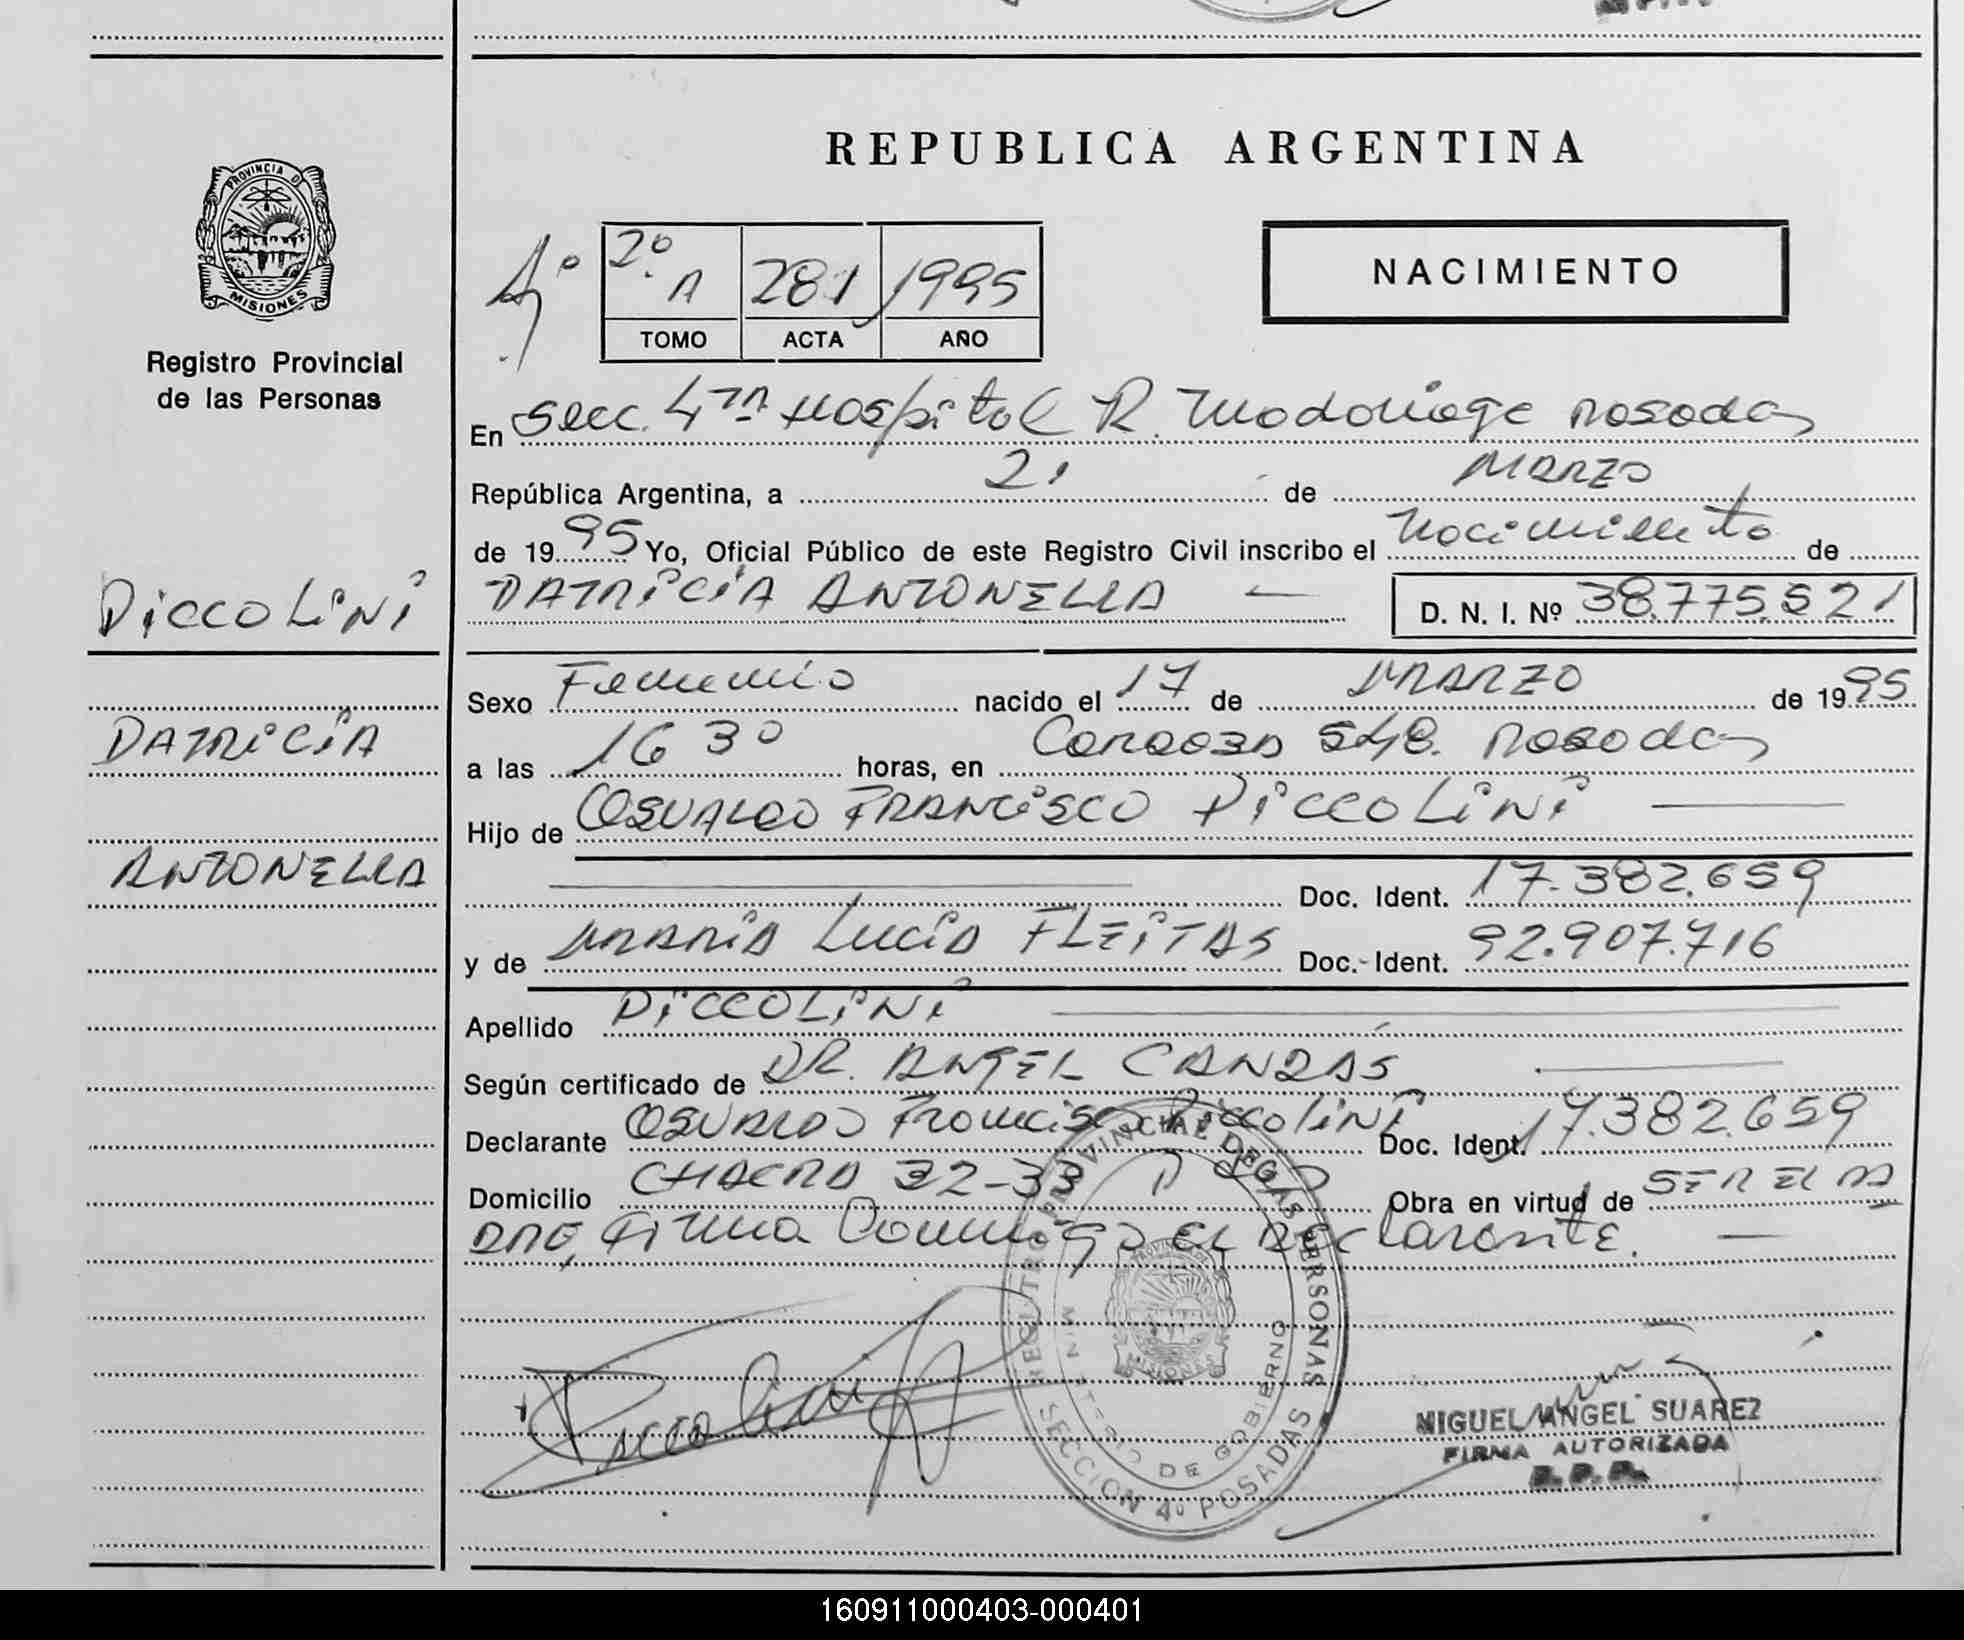 REPUBLICA ARGENTINA
PROVINCIA D
MISIONES
Registro Provincial
de las Personas
2º A 281 1995
TOMO ACTA AÑO
NACIMIENTO
En Secc. 4ta Hospital R. Madariaga Posadas
República Argentina, a 21 de MARZO
de 1995 Yo, Oficial Público de este Registro Civil inscribo el Nacimiento de
PATRICIA ANTONELLA — D. N. I. Nº 38.775.521
PICCOLINI
Sexo Femenino nacido el 17 de MARZO de 1995
PATRICIA
a las 16 30 horas, en Posadas
Hijo de OSVALDO FRANCISCO PICCOLINI
ANTONELLA
Doc. Ident. 17.382.659
y de MARIA LUCIA FLEITAS Doc. Ident. 92.907.716
Apellido PICCOLINI
Según certificado de DR. ANGEL
Declarante OSVALDO Francisco Piccolini Doc. Ident. 17.382.659
Domicilio CHACRA 32-33 Obra en virtud de SER EL PA
DRE, Firma Conmigo EL DEClarante. —
Piccolini
REGISTRO PROVINCIAL DE LAS PERSONAS
MINISTERIO DE GOBIERNO
PROVINCIA DE
MISIONES
SECCION 4º POSADAS
MIGUEL ANGEL SUAREZ
FIRMA AUTORIZADA
R. P. P.
160911000403-000401